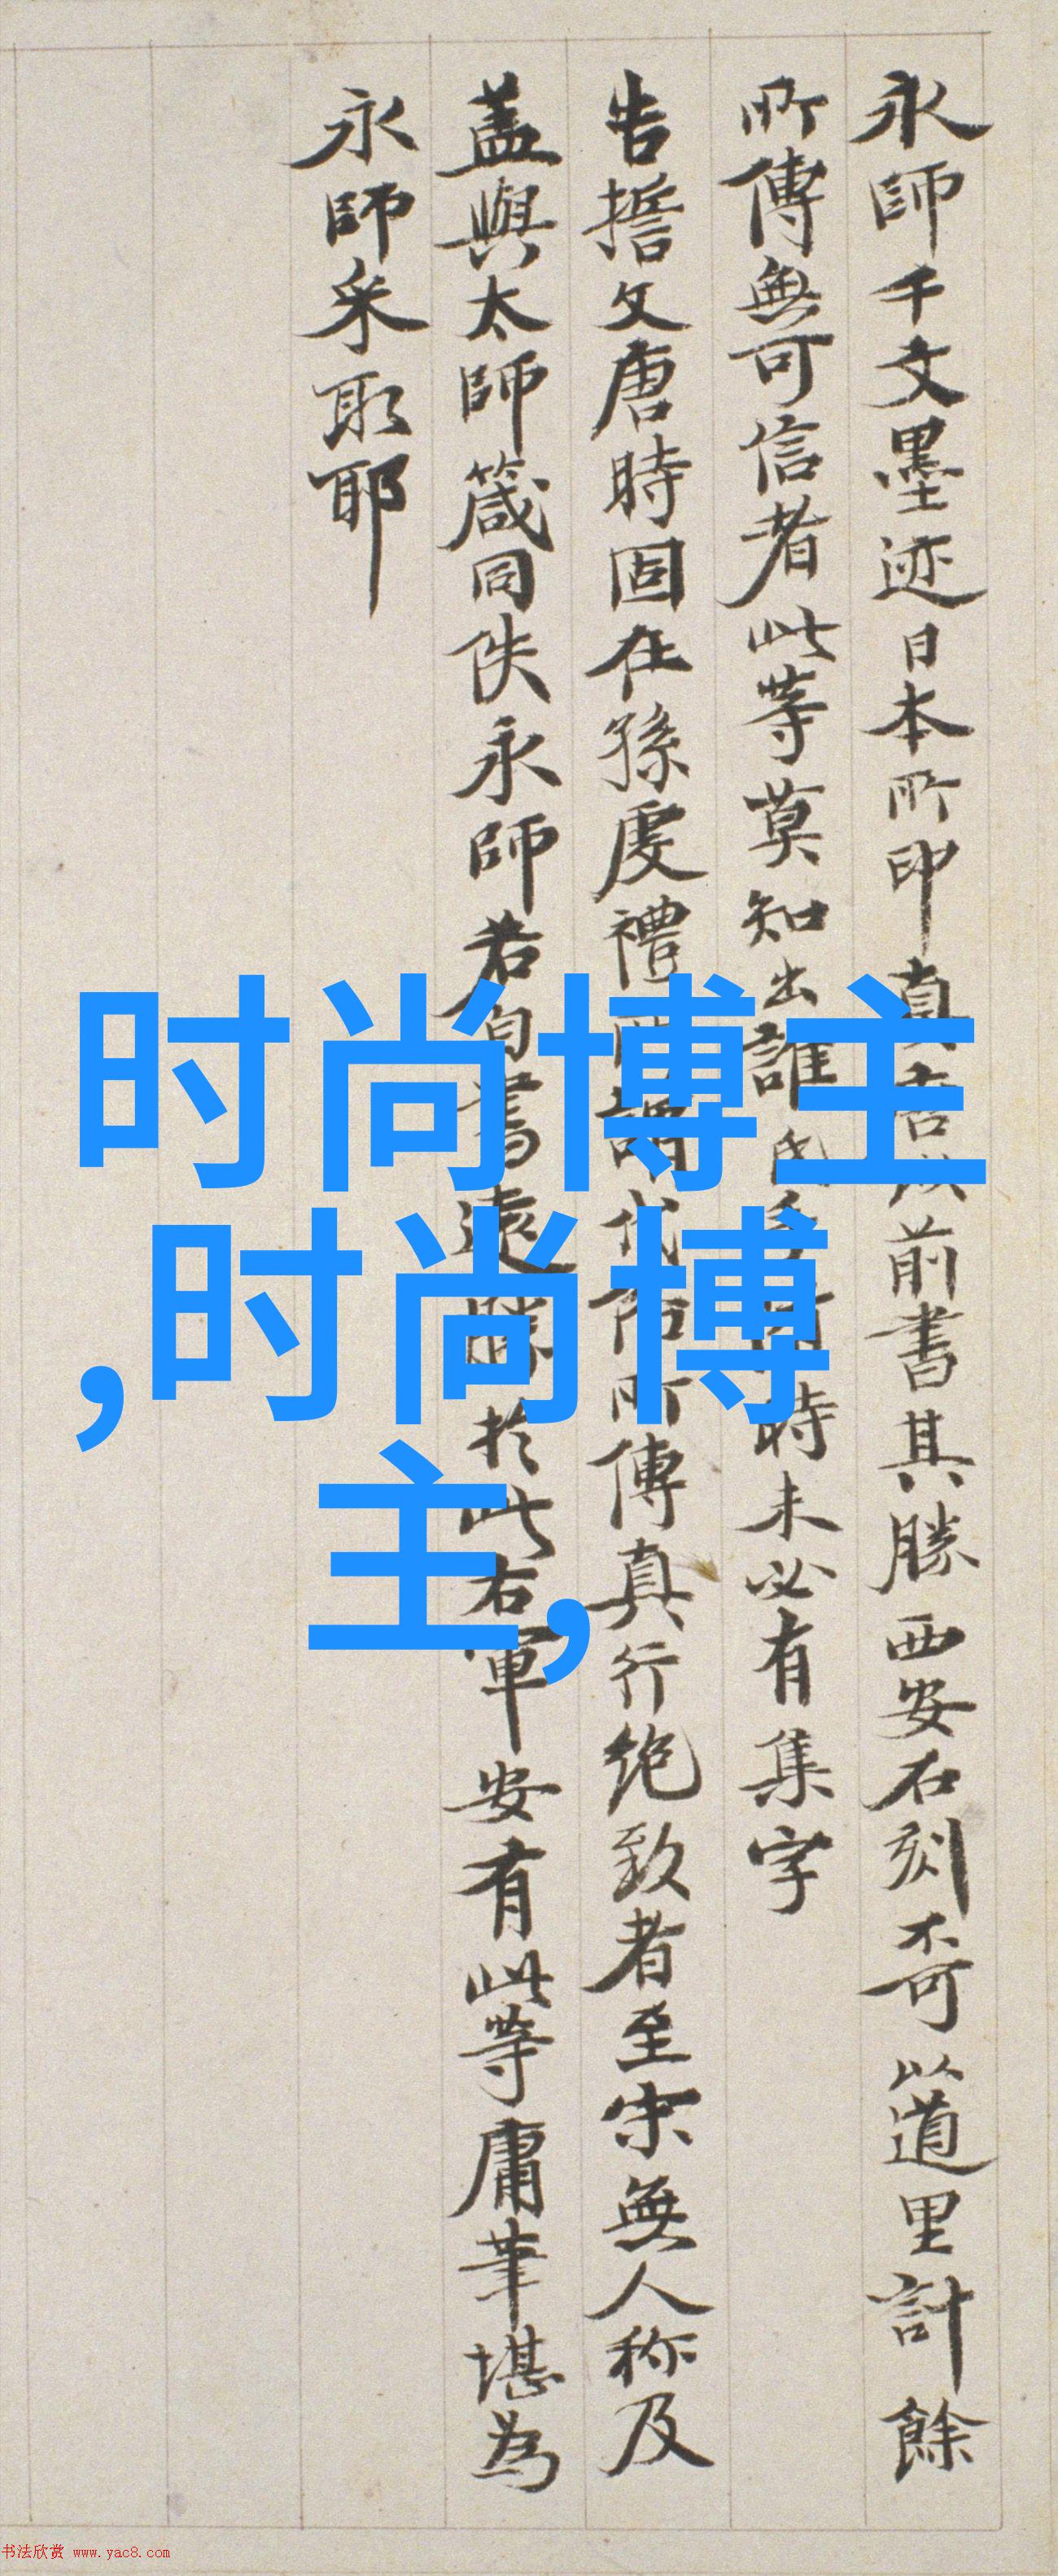 永師千文墨迹日本所印真書以前書其勝西安石刻不可以道里計餘
所傳無可信者此等莫知出誰氏手時未必有集字
告擔文唐時固在孫虔禮所謂代俗所傳真行絶致者至宋無人称及
盖與太師箴同佚永師若自書遠勝扵此右軍安有此等庸筆堪為
永師采取耶
时尚博主
,时尚博
主,
书法欣赏 www.yac8.com